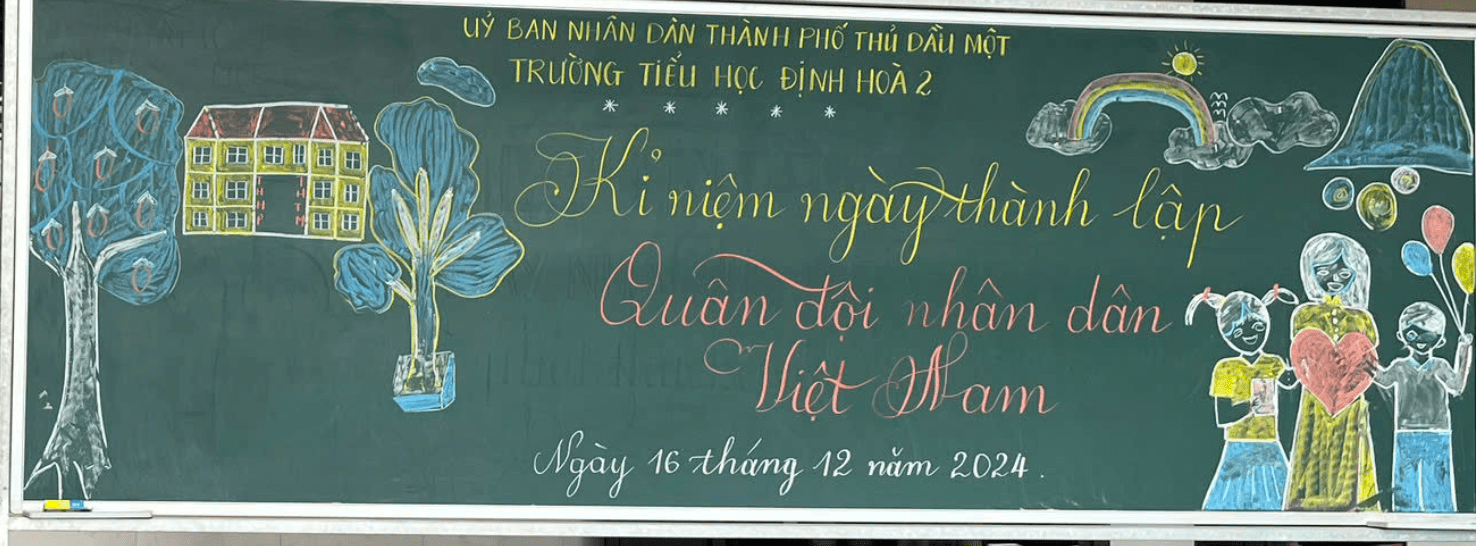 UỶ BAN NHÂN DÂN THÀNH PHỐ THỦ DẦU MỘT
TRƯỜNG TIỂU HỌC ĐỊNH HOÀ 2
* * * * *
Kỉ niệm ngày thành lập
Quân đội nhân dân
Việt Nam
Ngày 16 tháng 12 năm 2024.